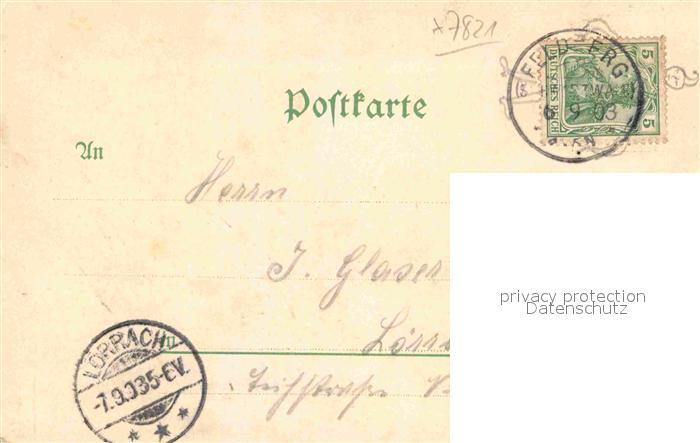 x7821
FELDBERG
5
DEUTSCHES REICH
5
6 9 03
Postkarte
An
Herrn
J. Glaser
in Lörr
LÖRRACH
-7.9.03.5-6V.
privacy protection
Datenschutz